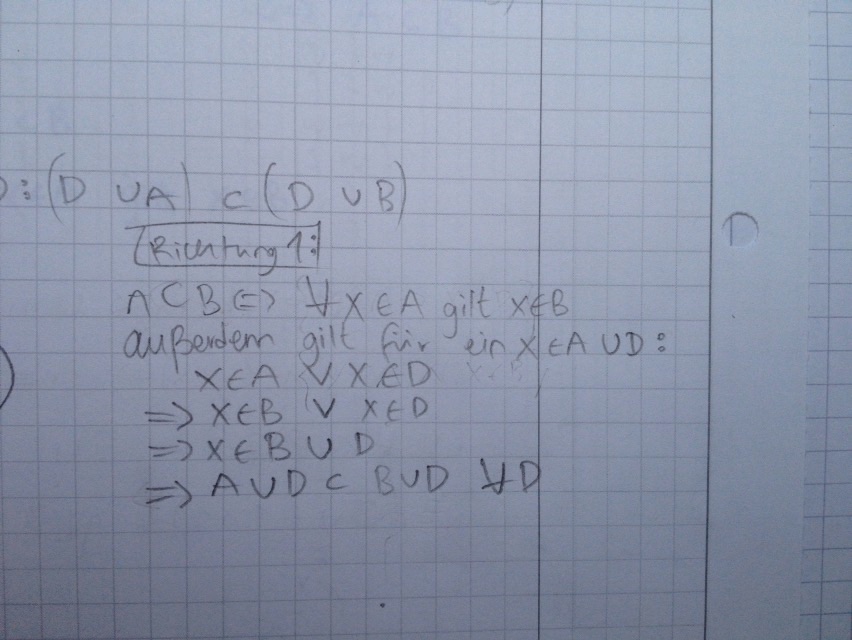 : (D ∪ A) ⊂ (D ∪ B)
Richtung 1:
A ⊂ B <=> ∀ x ∈ A gilt x ∈ B
außerdem gilt für ein x ∈ A ∪ D:
x ∈ A ∨ x ∈ D
=> x ∈ B ∨ x ∈ D
=> x ∈ B ∪ D
=> A ∪ D ⊂ B ∪ D ∀ D